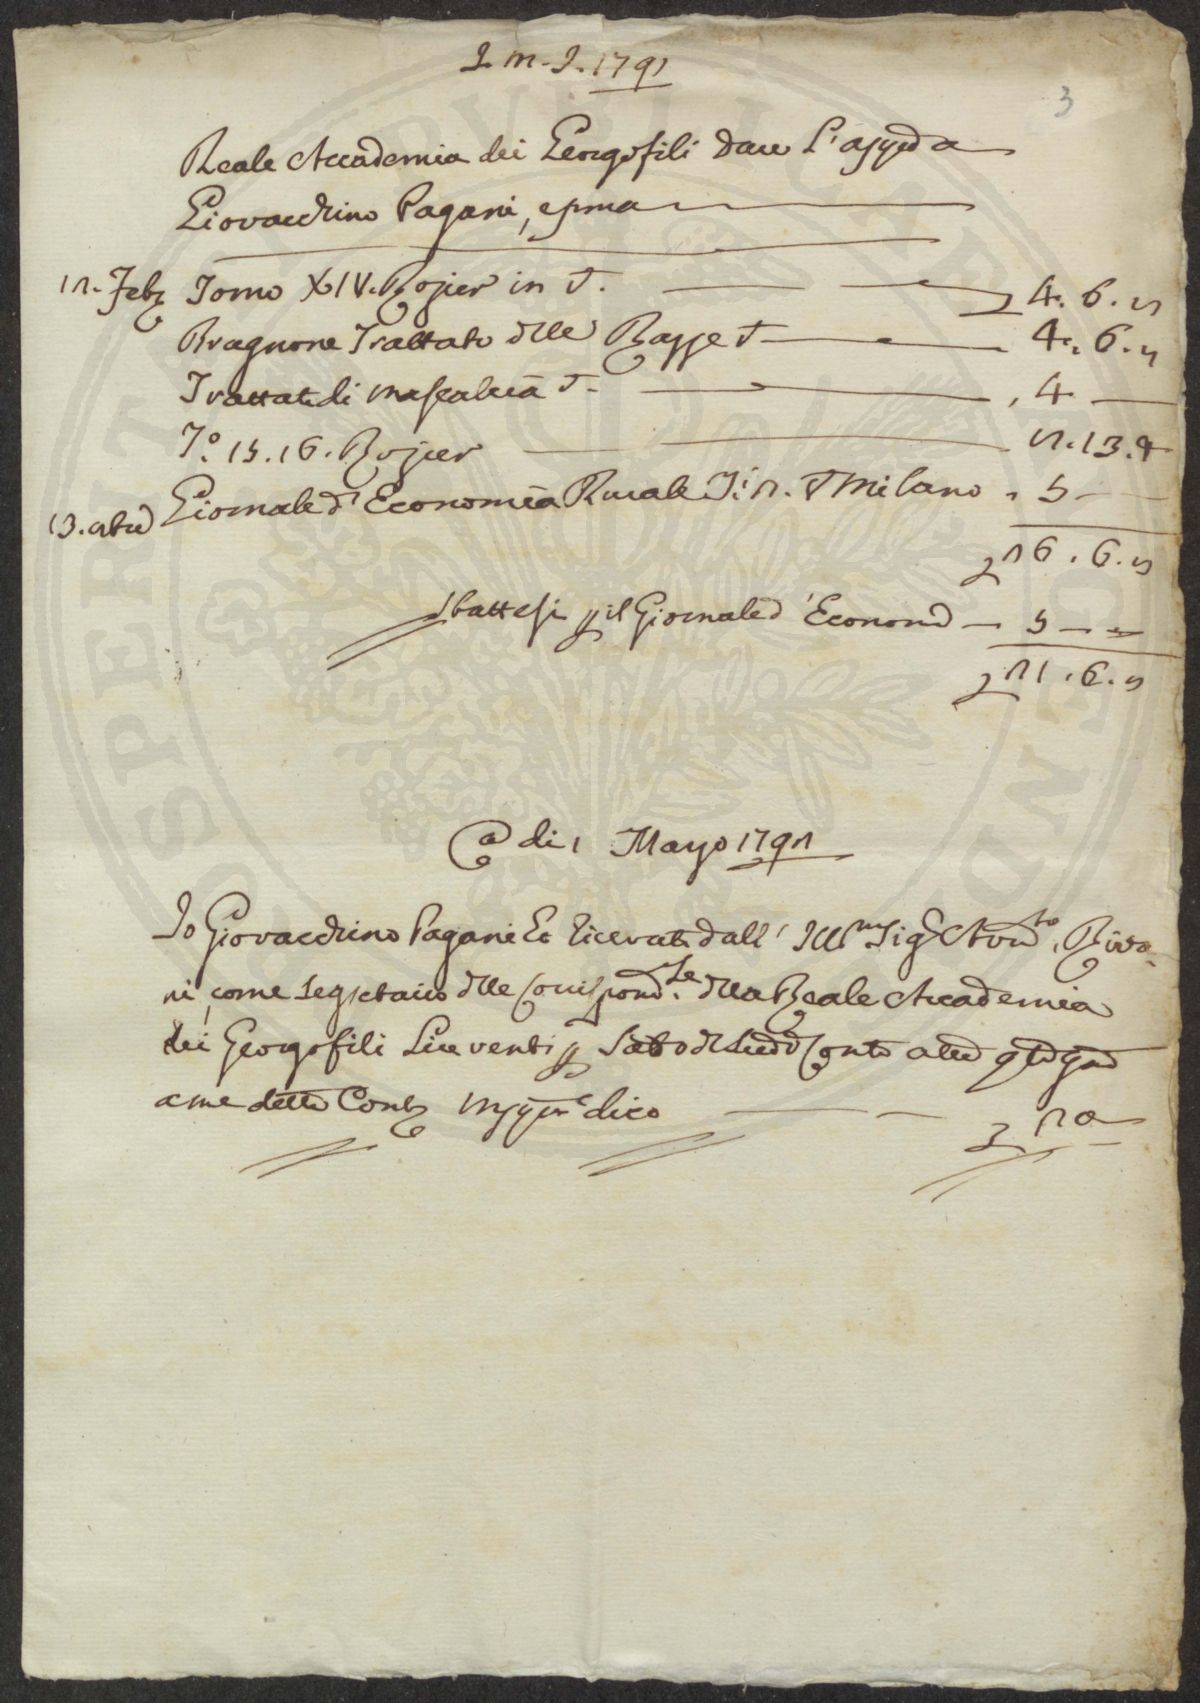 J. M. J. 1791
3
Reale Accademia dei Georgofili dare L'appd a
Giovacchino Pagani, e pma
12. Febo Tomo XIV. Rozier in 4. 4. 6. 8
Bragnone Trattato delle Razze 4. 6. 8
Trattato di mascalcia 4
To. 15. 16. Rozier 8. 13. 4
13. Giornale d'Economia Rurale Milano 5
26. 6. 8
sbattesi p il Giornale d'Econom 5
21. 6. 8
A di 1 Mago 1792
Io Giovacchino Pagani ho ricevuto dall' Illmo Sige Avvto. Rivo-
ni, come segretario delle Corrispondze. della Reale Accademia
dei Georgofili Lire venti p Saldo del Conto
a me detto Conto dico 20
SPERITATI PVBLICAE COMMODO